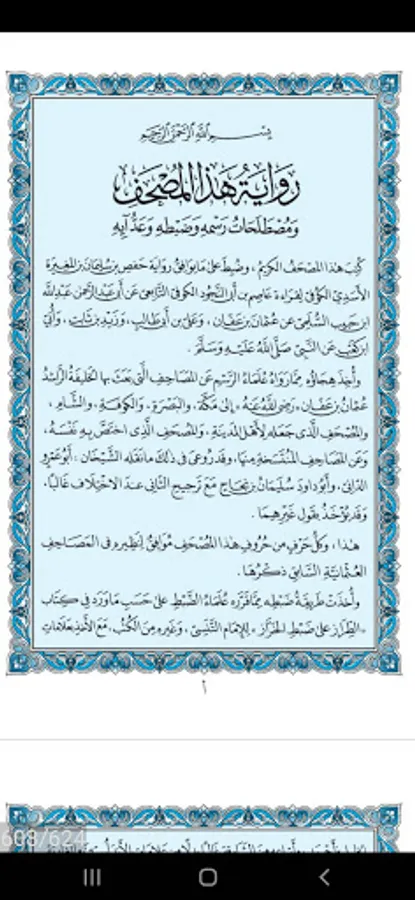 بِسْمِ اللَّهِ الرَّحْمَٰنِ الرَّحِيمِ
رِوَايَةُ هَذَا المُصْحَفِ
وَمُصْطَلَحَاتُ رَسْمِهِ وَضَبْطِهِ وَعَدِّ آيِهِ
كُتِبَ هَذَا المُصْحَفُ الكَرِيمُ، وَضُبِطَ عَلَى مَا يُوَافِقُ رِوَايَةَ حَفْصِ بنِ سُلَيْمَانَ بنِ المُغِيرَةِ
الأَسَدِيِّ الكُوفِيِّ لِقِرَاءَةِ عَاصِمِ بنِ أَبِي النَّجُودِ الكُوفِيِّ التَّابِعِيِّ عَنْ أَبِي عَبْدِ الرَّحْمَنِ عَبْدِ اللَّهِ
ابنِ حَبِيبٍ السُّلَمِيِّ عَنْ عُثْمَانَ بنِ عَفَّانَ، وَعَلِيِّ بنِ أَبِي طَالِبٍ، وَزَيْدِ بنِ ثَابِتٍ، وَأُبَيِّ
ابنِ كَعْبٍ عَنِ النَّبِيِّ صَلَّى اللَّهُ عَلَيْهِ وَسَلَّمَ.
وَأُخِذَ هِجَاؤُهُ مِمَّا رَوَاهُ عُلَمَاءُ الرَّسْمِ عَنِ المَصَاحِفِ الَّتِي بَعَثَ بِهَا الخَلِيفَةُ الرَّاشِدُ
عُثْمَانُ بنُ عَفَّانَ رَضِيَ اللَّهُ عَنْهُ، إِلَى مَكَّةَ، وَالبَصْرَةِ، وَالكُوفَةِ، وَالشَّامِ،
وَالمُصْحَفِ الَّذِي جَعَلَهُ لِأَهْلِ المَدِينَةِ، وَالمُصْحَفِ الَّذِي اخْتَصَّ بِهِ نَفْسَهُ،
وَعَنِ المَصَاحِفِ المُنْتَسَخَةِ مِنْهَا، وَقَدْ رُوعِيَ فِي ذَلِكَ مَا نَقَلَهُ الشَّيْخَانِ: أَبُو عَمْرٍو
الدَّانِيُّ، وَأَبُو دَاوُدَ سُلَيْمَانُ بنُ نَجَاحٍ مَعَ تَرْجِيحِ الثَّانِي عِنْدَ الاخْتِلَافِ غَالِبًا،
وَقَدْ يُؤْخَذُ بِقَوْلِ غَيْرِهِمَا.
هَذَا، وَكُلُّ حَرْفٍ مِنْ حُرُوفِ هَذَا المُصْحَفِ مُوَافِقٌ لِنَظِيرِهِ فِي المَصَاحِفِ
العُثْمَانِيَّةِ السَّابِقِ ذِكْرُهَا.
وَأُخِذَتْ طَرِيقَةُ ضَبْطِهِ مِمَّا قَرَّرَهُ عُلَمَاءُ الضَّبْطِ عَلَى حَسَبِ مَا وَرَدَ فِي كِتَابِ
«الطِّرَازِ عَلَى ضَبْطِ الخَرَّازِ» لِلْإِمَامِ التَّنَسِيِّ، وَغَيْرِهِ مِنَ الكُتُبِ، مَعَ الأَخْذِ بِعَلَامَاتِ
أ
608/624